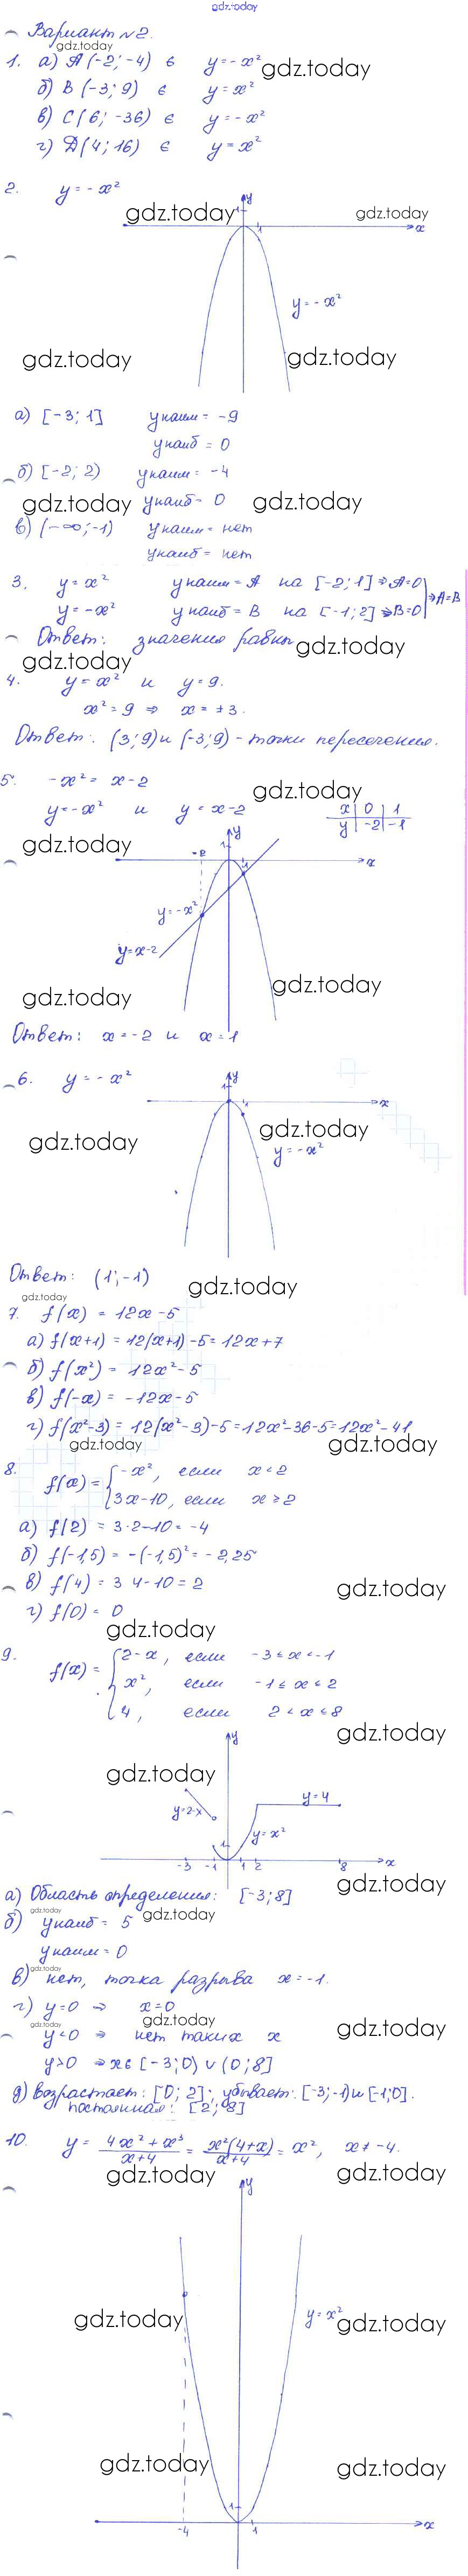 gdz.today
Вариант №2.
gdz.today
1. а) A(-2; -4) ∈ y = -x²
gdz.today
б) B(-3; 9) ∈ y = x²
в) C(6; -36) ∈ y = -x²
г) D(4; 16) ∈ y = x²
2. y = -x²
gdz.today gdz.today
y
1
1
x
y = -x²
gdz.today gdz.today
а) [-3; 1] yнаим = -9
yнаиб = 0
б) [-2; 2) yнаим = -4
gdz.today yнаиб = 0 gdz.today
в) (-∞; -1) yнаим = нет
yнаиб = нет
3. y = x² yнаим = A на [-2; 1] ⇒ A=0
y = -x² yнаиб = B на [-1; 2] ⇒ B=0 ⇒ A=B
Ответ: значения равны gdz.today
gdz.today
4. y = x² и y = 9.
x² = 9 ⇒ x = ±3.
Ответ: (3; 9) и (-3; 9) - точки пересечения.
5. -x² = x-2 gdz.today
y = -x² и y = x-2
x 0 1
y -2 -1
gdz.today
y
1
-2
1
x
y = -x²
y = x-2
gdz.today gdz.today
Ответ: x = -2 и x = 1
6. y = -x²
y
1
1
x
gdz.today gdz.today
y = -x²
Ответ: (1; -1) gdz.today
gdz.today
7. f(x) = 12x - 5
а) f(x+1) = 12(x+1) - 5 = 12x + 7
б) f(x²) = 12x² - 5
в) f(-x) = -12x - 5
г) f(x²-3) = 12(x²-3) - 5 = 12x² - 36 - 5 = 12x² - 41
gdz.today gdz.today
8. f(x) = { -x², если x < 2
3x-10, если x ≥ 2
а) f(2) = 3·2-10 = -4
б) f(-1,5) = -(-1,5)² = -2,25
в) f(4) = 3 4-10 = 2 gdz.today
г) f(0) = 0
gdz.today
9. f(x) = { 2-x, если -3 ≤ x < -1
x², если -1 ≤ x ≤ 2
4, если 2 < x ≤ 8
gdz.today
y
gdz.today
y=2-x
y = 4
y = x²
1
-3 -1 1 2 8 x
gdz.today
а) Область определения: [-3; 8]
gdz.today
б) yнаиб = 5 gdz.today
yнаим = 0
gdz.today
в) нет, точка разрыва x = -1.
г) y=0 ⇒ x=0
gdz.today gdz.today
y<0 ⇒ нет таких x gdz.today
y>0 ⇒ x∈ [-3; 0) ∪ (0; 8]
д) возрастает: [0; 2]; убывает: [-3; -1) и [-1; 0].
постоянная: [2; 8]
10. y = (4x² + x³)/(x+4) = x²(4+x)/(x+4) = x², x ≠ -4.
gdz.today gdz.today
y
y = x²
gdz.today gdz.today
gdz.today gdz.today
1
-4 1 x